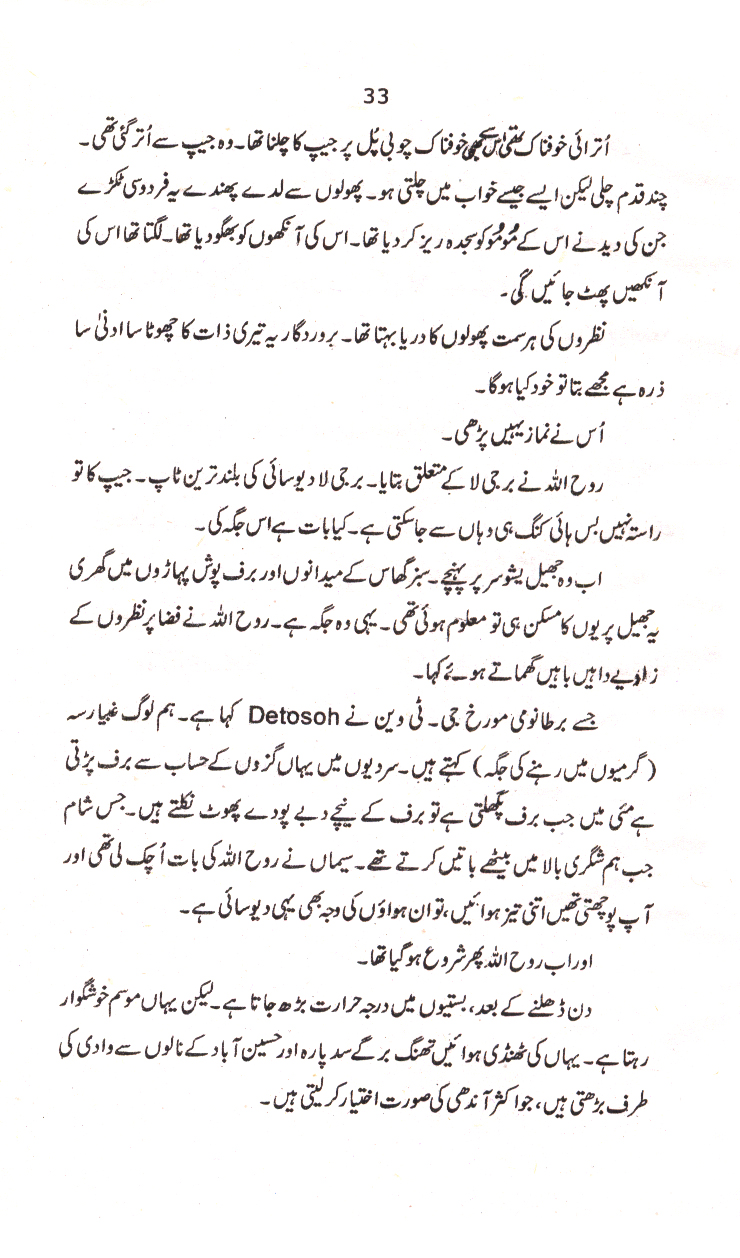 33
اُترائی خوفناک تھی اس سے بھی خوفناک چوبی پُل پر جیپ کا چلنا تھا۔ وہ جیپ سے اُتر گئی تھی۔
چند قدم چلی لیکن ایسے جیسے خواب میں چلتی ہو۔ پھولوں سے لدے پھندے یہ فردوسی ٹکڑے
جن کی دید نے اس کے مُومُو کو سجدہ ریز کر دیا تھا۔ اس کی آنکھوں کو بھگو دیا تھا۔ لگتا تھا اس کی
آنکھیں پھٹ جائیں گی۔
نظروں کی ہر سمت پھولوں کا دریا بہتا تھا۔ پروردگار یہ تیری ذات کا چھوٹا سا ادنیٰ سا
ذرہ ہے مجھے بتا تو خود کیا ہوگا۔
اُس نے نماز یہیں پڑھی۔
روح اللہ نے برجی لا کے متعلق بتایا۔ برجی لا دیوسائی کی بلند ترین ٹاپ۔ جیپ کا تو
راستہ نہیں بس ہائی کنگ ہی وہاں سے جا سکتی ہے۔ کیا بات ہے اس جگہ کی۔
اب وہ جھیل یشوسر پر پہنچے۔ سبز گھاس کے میدانوں اور برف پوش پہاڑوں میں گھری
یہ جھیل پریوں کا مسکن ہی تو معلوم ہوئی تھی۔ یہی وہ جگہ ہے۔ روح اللہ نے فضا پر نظروں کے
زاویے دائیں بائیں گھماتے ہوئے کہا۔
جسے برطانوی مورخ جی۔ ٹی وین نے Detosoh کہا ہے۔ ہم لوگ غبیارسہ
(گرمیوں میں رہنے کی جگہ) کہتے ہیں۔ سردیوں میں یہاں گزوں کے حساب سے برف پڑتی
ہے مئی میں جب برف پگھلتی ہے تو برف کے نیچے دبے پودے پھوٹ نکلتے ہیں۔ جس شام
جب ہم شگری بالا میں بیٹھے باتیں کرتے تھے۔ سیماں نے روح اللہ کی بات اُچک لی تھی اور
آپ پوچھتی تھیں اتنی تیز ہوائیں، تو ان ہواؤں کی وجہ بھی یہی دیوسائی ہے۔
اور اب روح اللہ پھر شروع ہو گیا تھا۔
دن ڈھلنے کے بعد، بستیوں میں درجہ حرارت بڑھ جاتا ہے۔ لیکن یہاں موسم خوشگوار
رہتا ہے۔ یہاں کی ٹھنڈی ہوائیں تھنگ برگے سدپارہ اور حسین آباد کے نالوں سے وادی کی
طرف بڑھتی ہیں، جو اکثر آندھی کی صورت اختیار کر لیتی ہیں۔